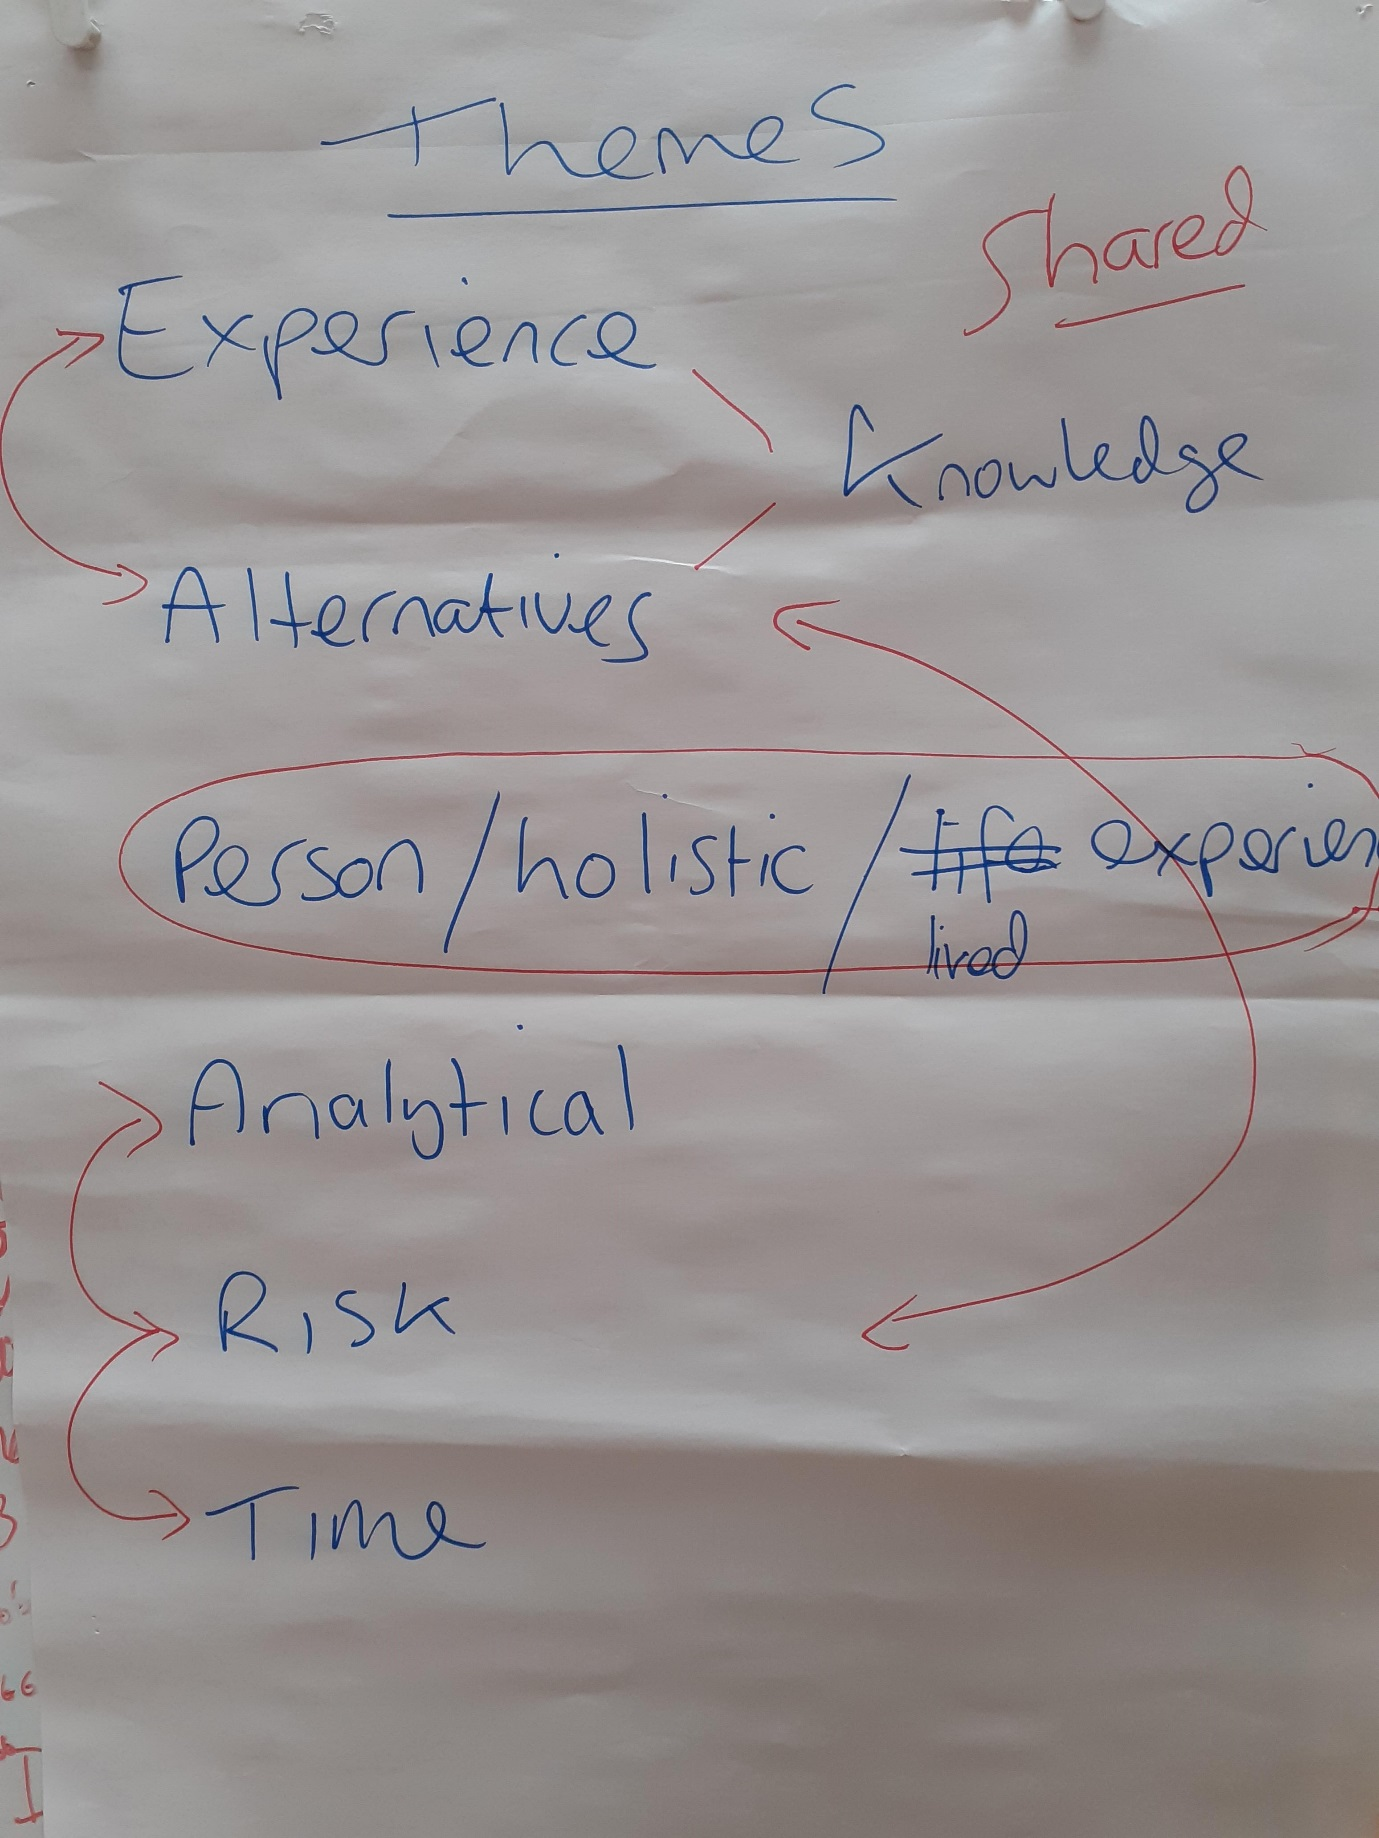 Themes
Shared
Experience
Knowledge
Alternatives
Person/holistic/life experien
lived
Analytical
Risk
Time